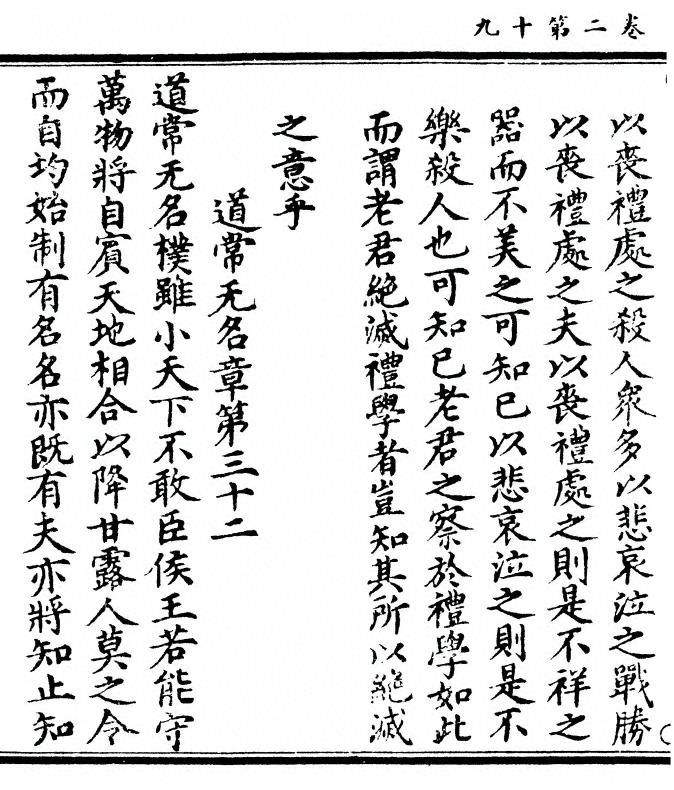 卷二第十九
以喪禮處之殺人衆多以悲哀泣之戰勝
以喪禮處之夫以喪禮處之則是不祥之
器而不美之可知已以悲哀泣之則是不
樂殺人也可知已老君之察於禮學如此
而謂老君絶滅禮學者豈知其所以絶滅
之意乎
道常无名章第三十二
道常无名樸雖小天下不敢臣侯王若能守
萬物將自賓天地相合以降甘露人莫之令
而自均始制有名名亦既有夫亦將知止知